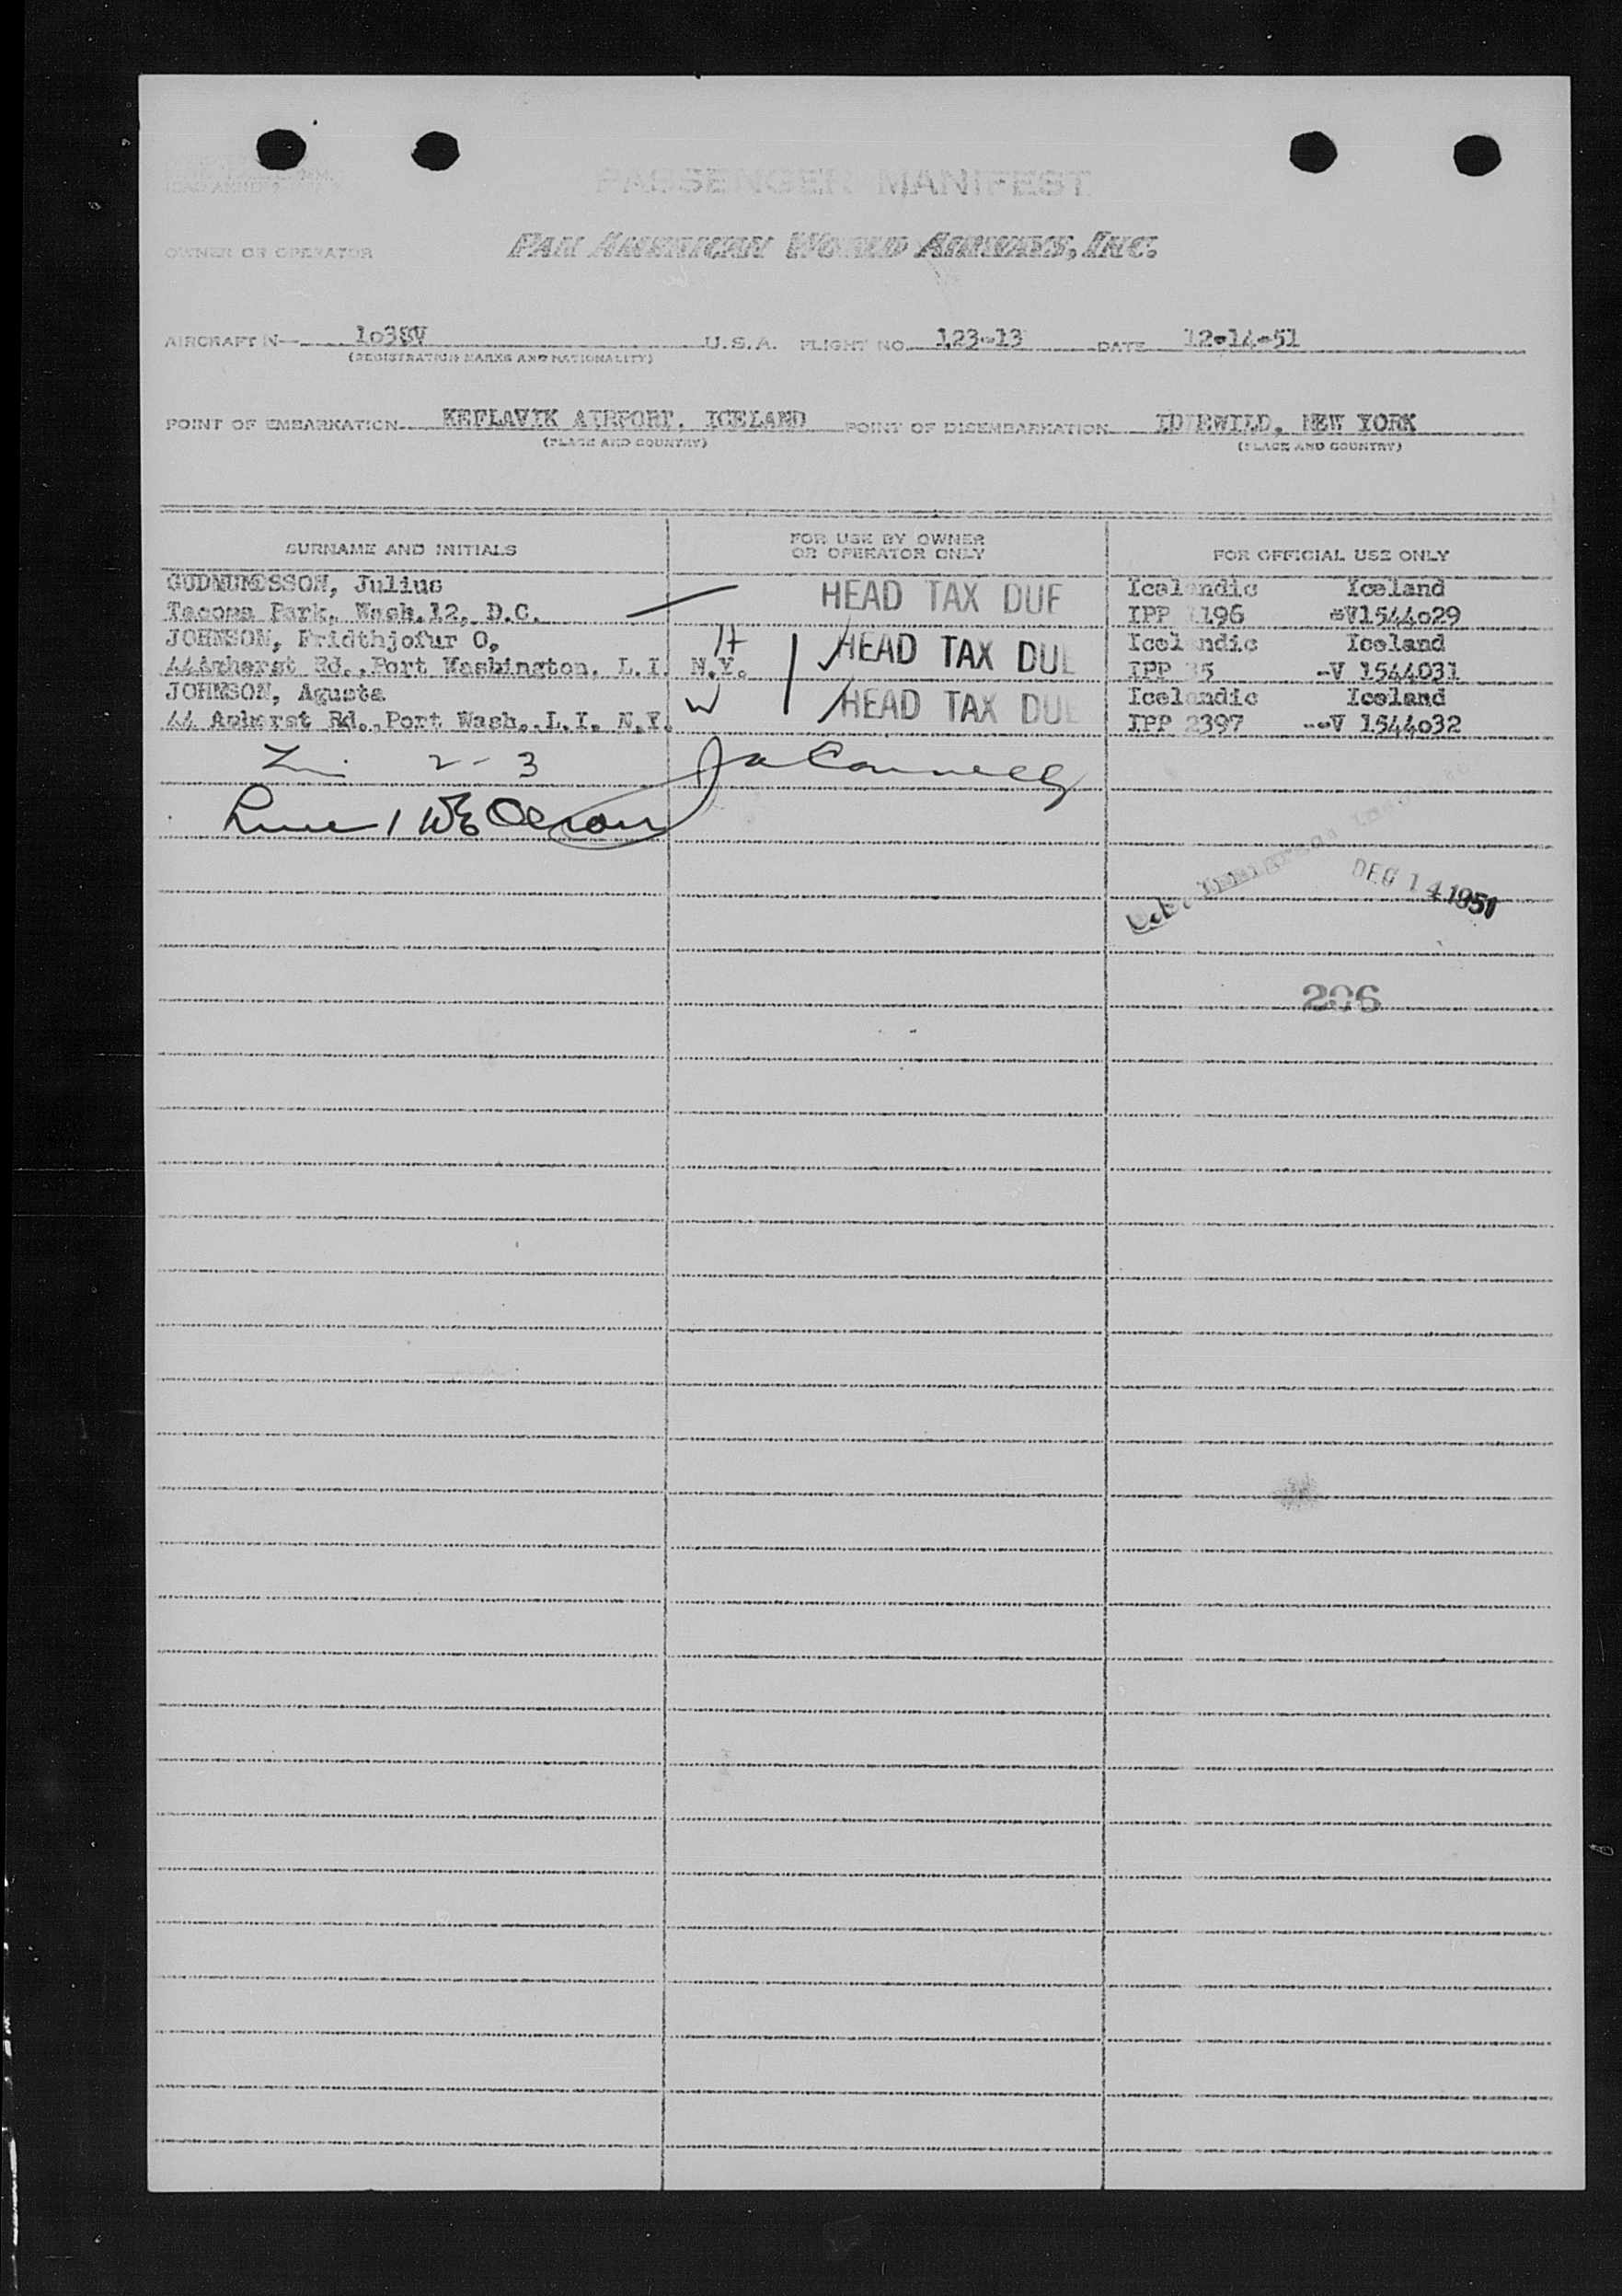 PASSENGER MANIFEST
OWNER OR OPERATOR PAN AMERICAN WORLD AIRWAYS, INC.
AIRCRAFT N 1038V U.S.A. FLIGHT NO. 123-13 DATE 12-14-51
(REGISTRATION MARKS AND NATIONALITY)
POINT OF EMBARKATION KEFLAVIK AIRPORT, ICELAND POINT OF DISEMBARKATION IDLEWILD, NEW YORK
(PLACE AND COUNTRY) (PLACE AND COUNTRY)
SURNAME AND INITIALS FOR USE BY OWNER OR OPERATOR ONLY FOR OFFICIAL USE ONLY
GUDMUNDSSON, Julius HEAD TAX DUE Icelandic Iceland
Tacoma Park, Wash.12, D.C. IPP 1196 -V1544029
JOHNSON, Fridthjofur O, H HEAD TAX DUE Icelandic Iceland
44Amherst Rd.,Port Washington, L.I. N.Y. IPP 35 -V 1544031
JOHNSON, Agusta W HEAD TAX DUE Icelandic Iceland
44 Amherst Rd.,Port Wash., L.I. N.Y. IPP 2397 --V 1544032
2 - 3
DEC 14 1951
206